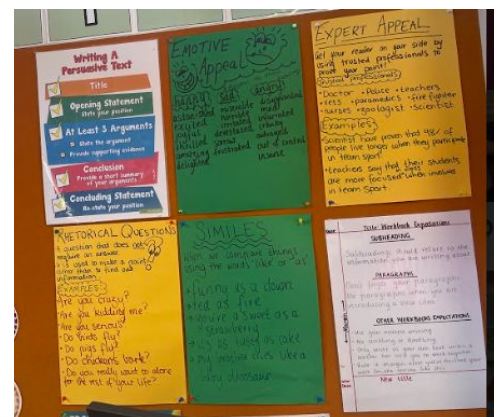 Writing A
Persuasive Text
Title
Opening Statement
State your position
At Least 3 Arguments
State the argument
Provide supporting evidence
Conclusion
Provide a short summary
of your arguments
Concluding Statement
Re-state your position
EMOTIVE
Appeal
happy
excited
thrilled
amazing
delighted
sad
miserable
devastated
frustrated
angry
disappointed
mad
infuriated
outraged
out of control
insane
EXPERT APPEAL
Get your reader on your side by
using trusted professionals to
prove your point!
Trusted professionals
Doctor • Police • teachers
vets • paramedics • fire fighter
nurses • Scientist
Examples
Scientist have proven that 98% of
people live longer when they participate
in team sport
teachers say that their students
are more focused when involved
in team sport
RHETORICAL QUESTIONS
A question that does not
require an answer.
It is used to make a point
rather than to find out
information
EXAMPLES:
Are you crazy?
Are you kidding me?
Are you serious?
Do birds fly?
Do pigs fly?
Do chickens bark?
Do you really want to alone
for the rest of your life?
SIMILES
When we compare things
using the words 'like' or "as"
funny as a clown
red as fire
you're a sweet as a
strawberry
as easy as cake
my mother cries like a
baby dinosaur
Workbook Expectations
SUBHEADING
Subheadings should relate to the
information you are writing about
PARAGRAPHS
your paragraphs.
paragraphs when you are
introducing a new idea
OTHER WORKBOOK EXPECTATIONS
Use your neatest writing
No scribbling or
New title